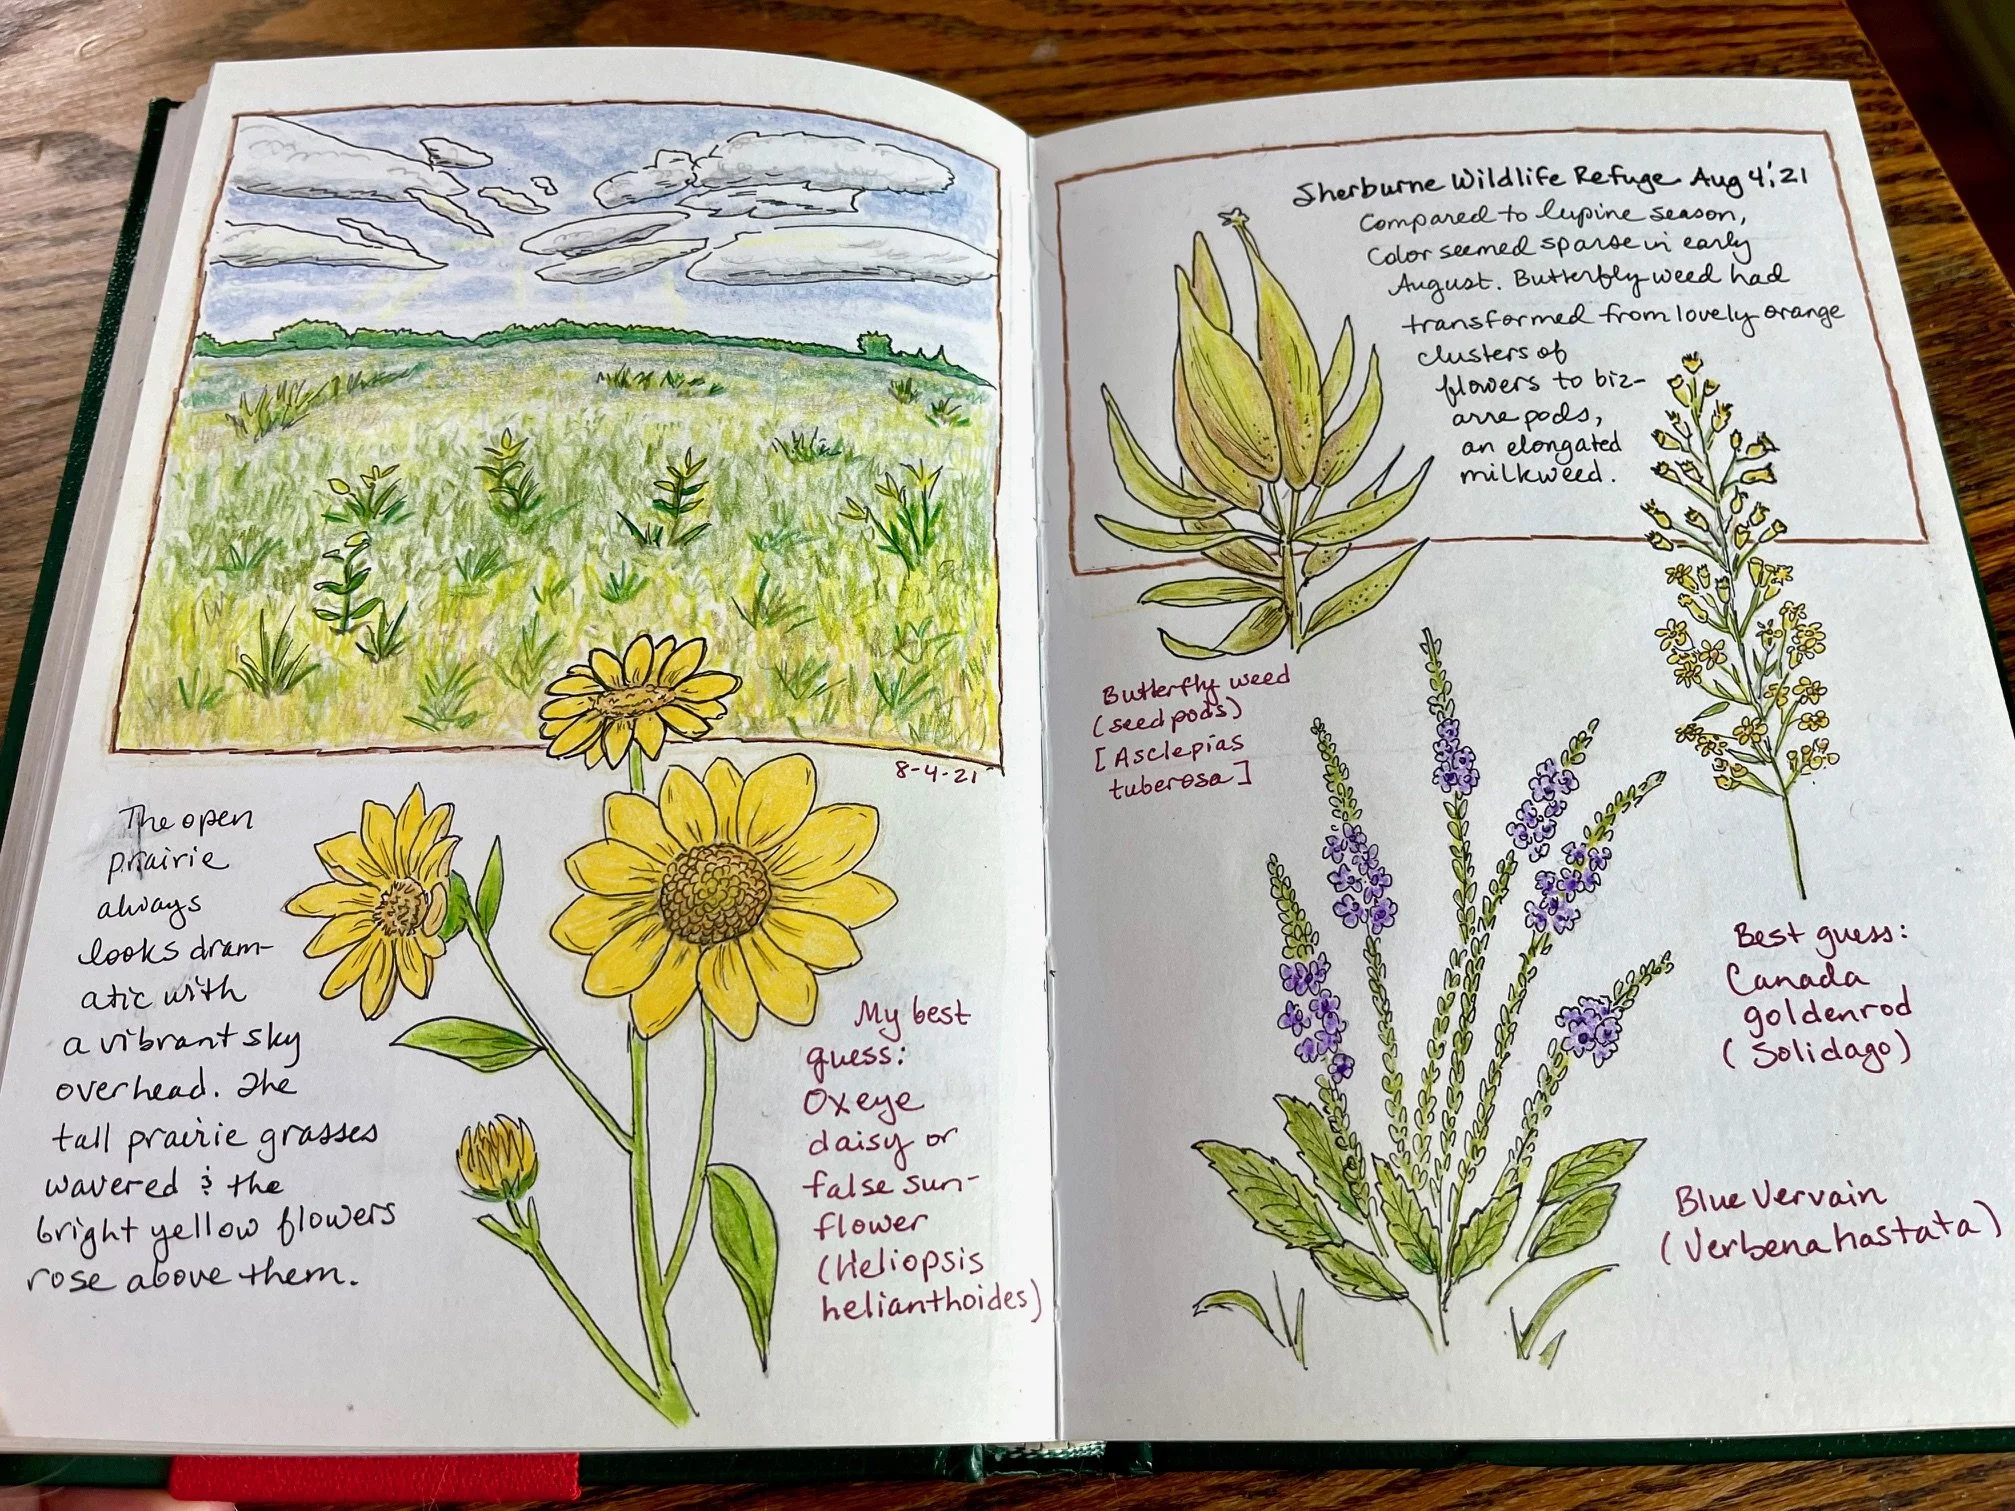 8-4-21
The open
prairie
always
looks dram-
atic with
a vibrant sky
overhead. The
tall prairie grasses
wavered & the
bright yellow flowers
rose above them.
My best
guess:
Oxeye
daisy or
false sun-
flower
(Heliopsis
helianthoides)
Sherburne Wildlife Refuge Aug 4, '21
Compared to lupine season,
color seemed sparse in early
August. Butterfly weed had
transformed from lovely orange
clusters of
flowers to biz-
arre pods,
an elongated
milkweed.
Butterfly weed
(seed pods)
[Asclepias
tuberosa]
Best guess:
Canada
goldenrod
(Solidago)
Blue Vervain
(Verbena hastata)